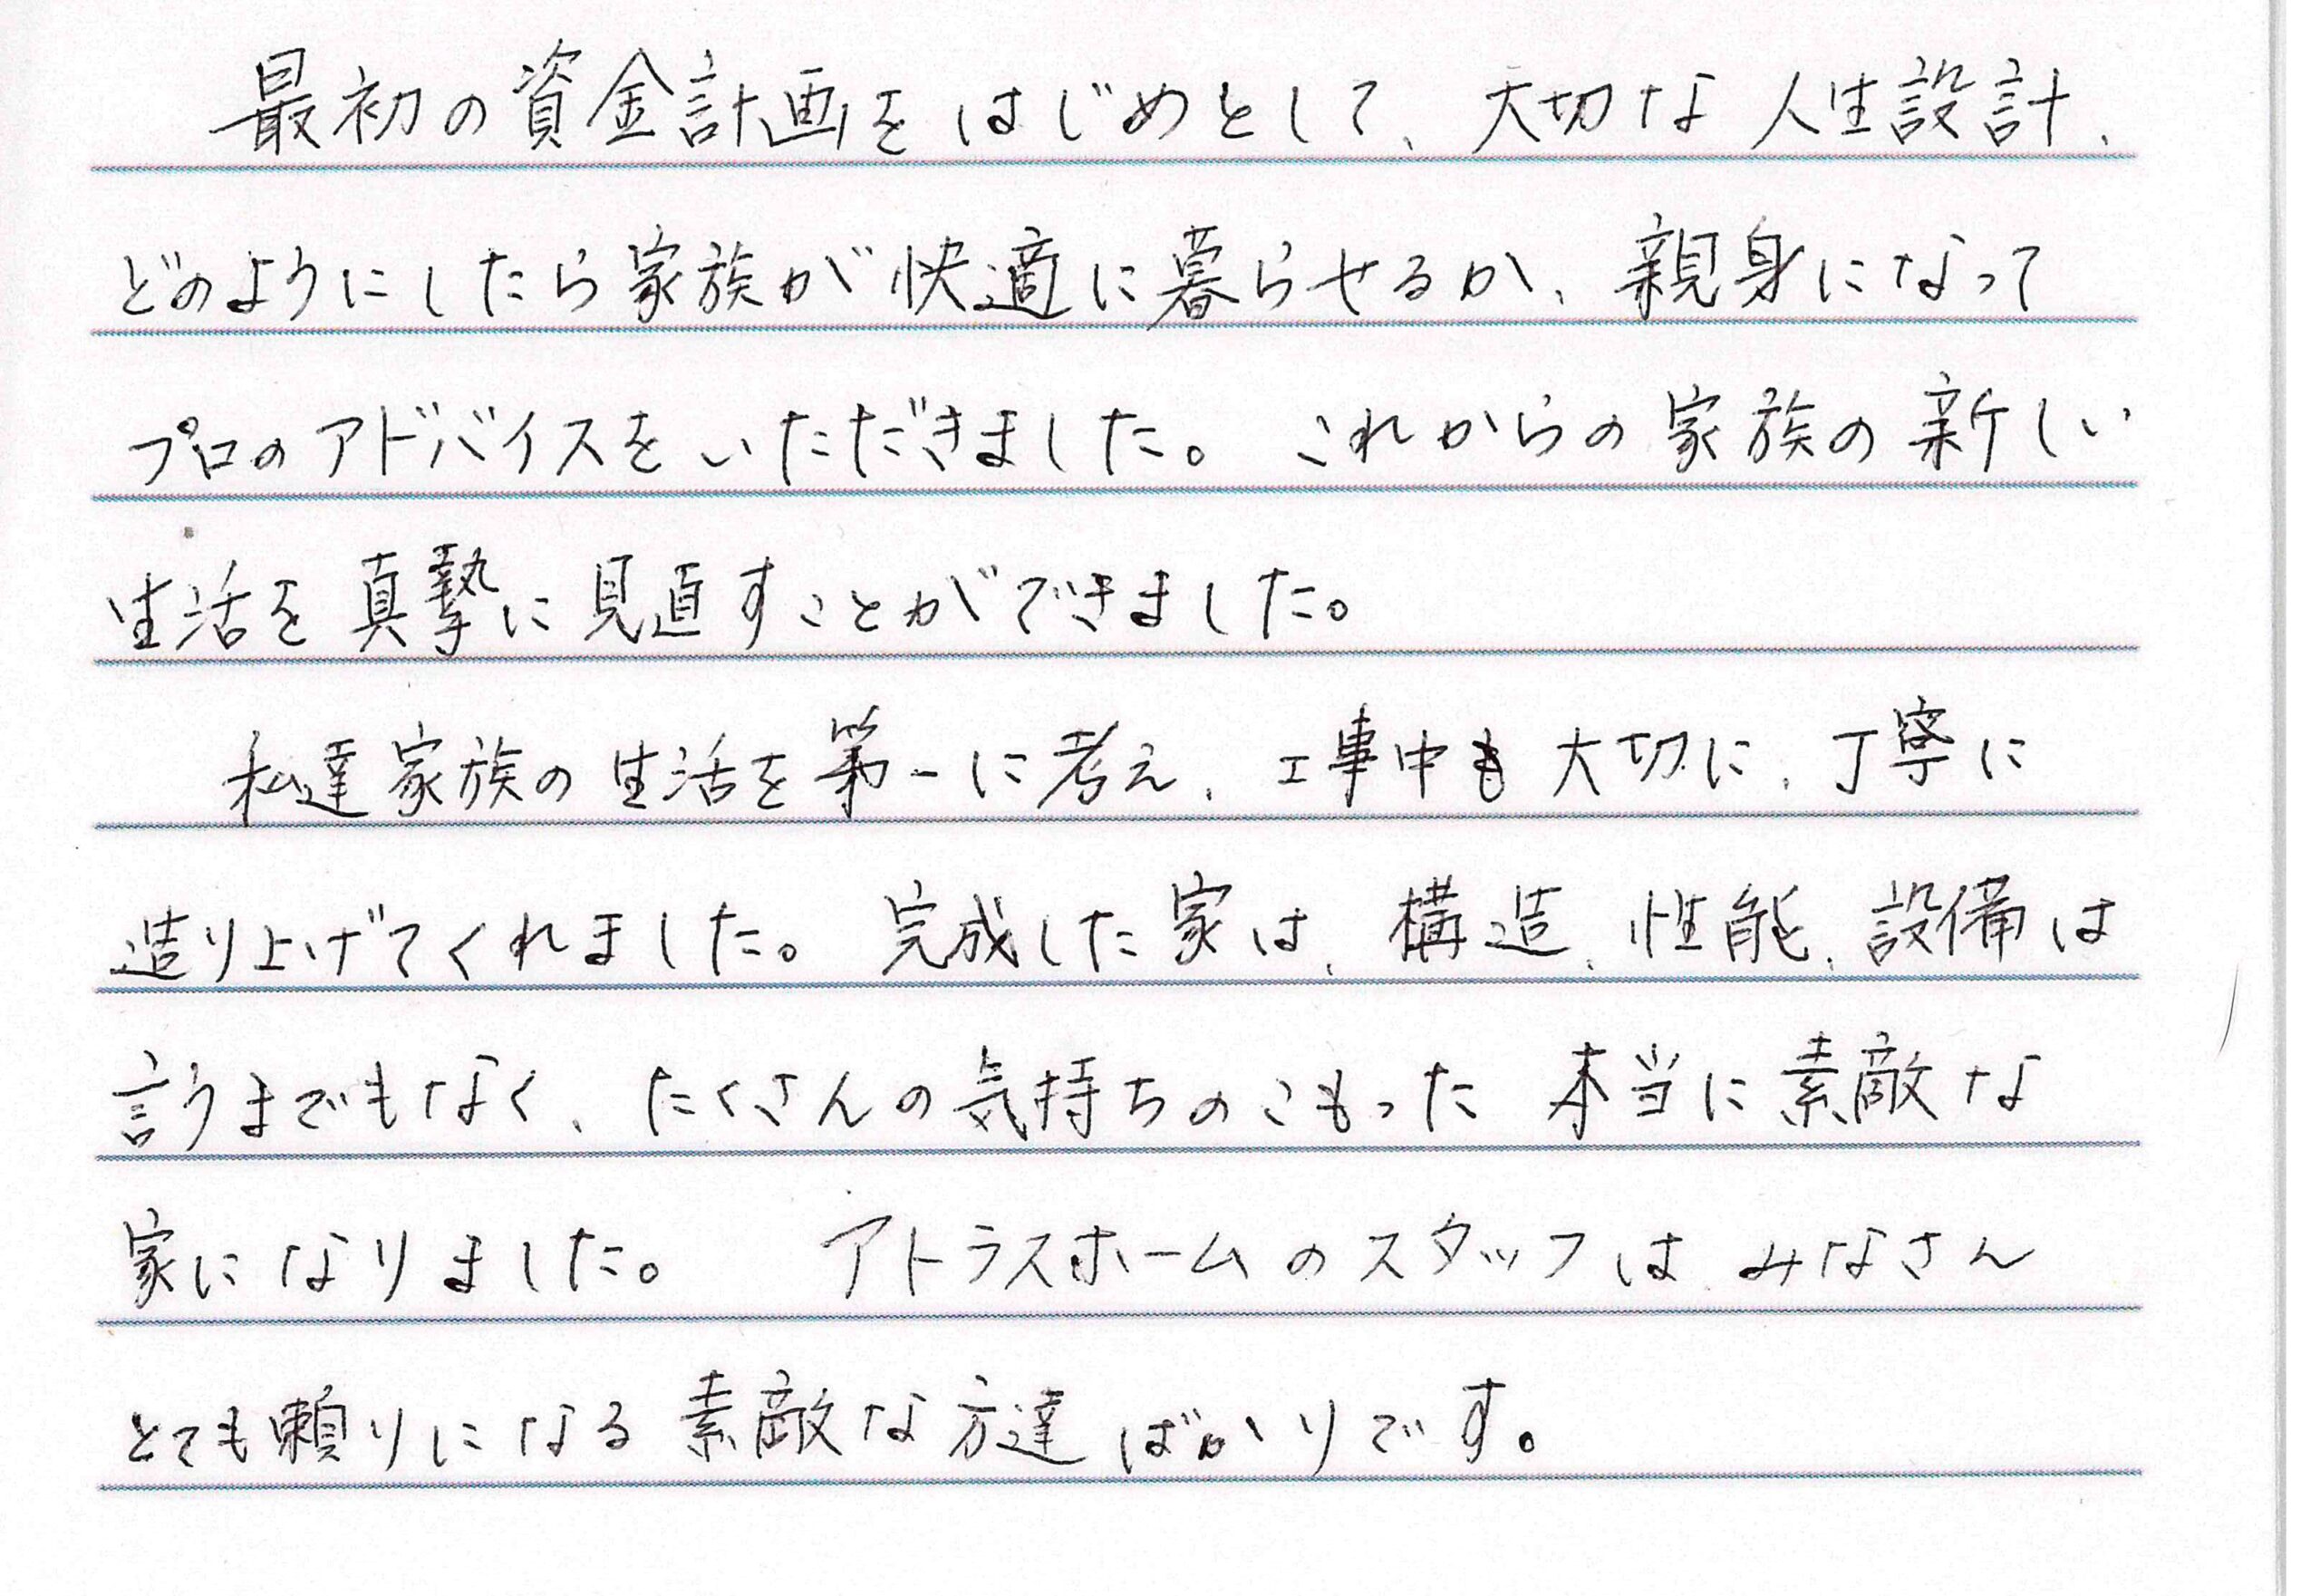 最初の資金計画をはじめとして、大切な人生設計、
どのようにしたら家族が快適に暮らせるか、親身になって
プロのアドバイスをいただきました。これからの家族の新しい
生活を真摯に見直すことができました。
私達家族の生活を第一に考え、工事中も大切に、丁寧に
造り上げてくれました。完成した家は、構造、性能、設備は
言うまでもなく、たくさんの気持ちのこもった本当に素敵な
家になりました。 アトラスホームのスタッフはみなさん
とても頼りになる素敵な方達ばかりです。